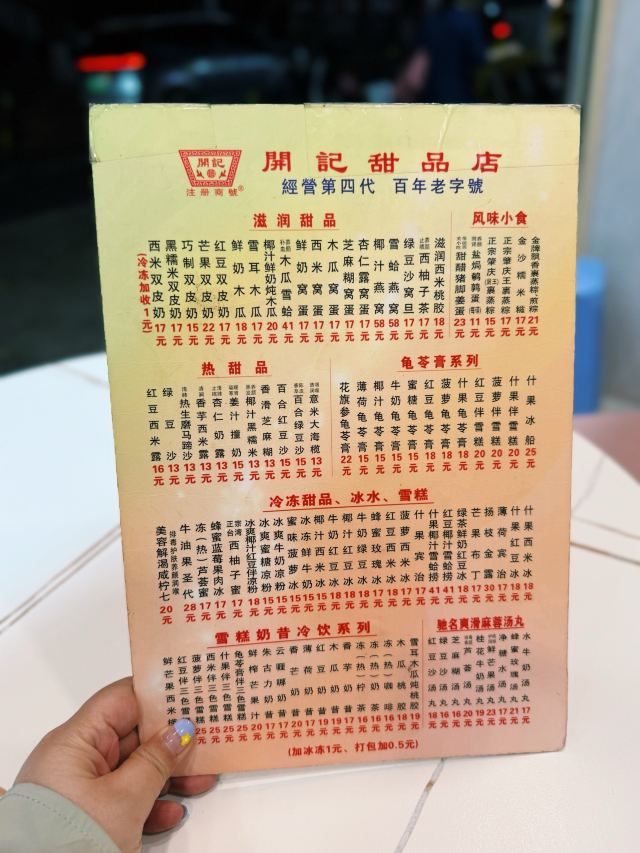 開記
注册商號®
開記甜品店
經營第四代 百年老字號
滋润甜品
(冷冻加收1元)
西米双皮奶 17元
黑糯米双皮奶 17元
巧制双皮奶 15元
芒果双皮奶 22元
红豆双皮奶 17元
鲜奶木瓜 17元
雪耳木瓜 18元
椰汁鲜奶炖木瓜 20元
木瓜雪蛤 41元
鲜奶窝蛋 17元
西米窝蛋 17元
木瓜窝蛋 17元
芝麻糊窝蛋 17元
杏仁露窝蛋 17元
椰汁燕窝 58元
雪蛤燕窝 58元
绿豆沙窝旦 17元
西柚子茶 17元
滋润西米桃胶 18元
风味小食
甜醋猪脚姜蛋 23元
盐焗鹌鹑蛋 11元
正宗肇庆裹蒸粽 15元
正宗肇庆王裹蒸粽 17元
金沙糯米糍 17元
金牌飘香裹蒸粽煎粽 21元
热甜品
红豆西米露 16元
绿豆沙 13元
热生磨马蹄沙 13元
香芋西米露 13元
杏仁奶露 13元
姜汁撞奶 15元
椰汁黑糯米 13元
香滑芝麻糊 13元
百合红豆沙 15元
百合绿豆沙 15元
意米大海榄 13元
龟苓膏系列
花旗参龟苓膏 22元
薄荷龟苓膏 15元
椰汁龟苓膏 15元
牛奶龟苓膏 15元
蜜糖龟苓膏 15元
红豆龟苓膏 18元
菠萝龟苓膏 18元
什果龟苓膏 18元
红豆伴雪糕 20元
菠萝伴雪糕 20元
什果伴雪糕 20元
什果冰船 25元
冷冻甜品、冰水、雪糕
排毒护肤养颜润喉
美容解渴咸柠七 20元
牛油果圣代 28元
冻(热)芦荟蜜 17元
蜂蜜蓝莓果肉冰 17元
西柚子蜜 17元
冰爽椰汁红豆伴凉粉 18元
冰爽蜜糖凉粉 15元
冰爽牛奶凉粉 15元
蜜味菠萝冰 15元
冰冻鲜牛奶 15元
椰汁西米冰 17元
牛奶红豆冰 17元
牛奶绿豆冰 17元
蜂蜜玫瑰冰 17元
红豆西米冰 17元
菠萝西米冰 17元
什果宾治 17元
什果椰汁雪蛤捞 41元
红豆椰汁雪蛤捞 41元
绿茶鲜奶红豆冰 18元
芒果布丁 17元
扬枝金露 30元
薄荷宾治 17元
什果红豆冰 18元
什果西米冰 18元
雪糕奶昔冷饮系列
鲜芒果西米捞
红豆伴三色雪糕
菠萝伴三色雪糕 25元
西米伴三色雪糕 25元
什果伴三色雪糕 25元
龟苓膏伴三色雪糕 25元
鲜榨芒果汁 20元
朱古力奶昔 20元
云喱嗱奶昔 20元
香芒奶昔 20元
薄荷奶昔 17元
红豆奶昔 19元
木瓜奶昔 19元
香芋奶昔 17元
冻(热)柠茶 16元
冻(热)奶茶 16元
冻(热)咖啡 18元
木瓜桃胶 18元
雪耳木瓜炖桃胶 19元
驰名爽滑麻蓉汤丸
红豆沙汤丸 18元
绿豆沙汤丸 16元
芝麻糊汤丸 16元
芦荟汤丸 20元
桂花牛奶汤丸 19元
鲜芒果汤丸 23元
净糖水汤丸 17元
蜂蜜玫瑰汤丸 21元
水牛奶汤丸 17元
(加冰冻1元、打包加0.5元)